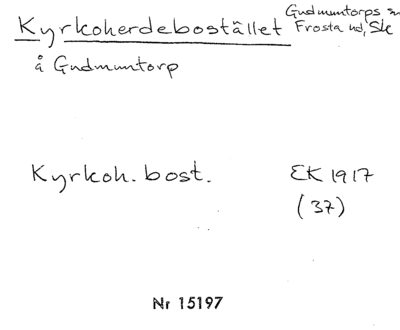 Kyrkoherdebostället
Gudmuntorps sn
Frosta hd, Sk
å Gudmuntorp
Kyrkoh. bost.
EK 1917
(37)
Nr 15197